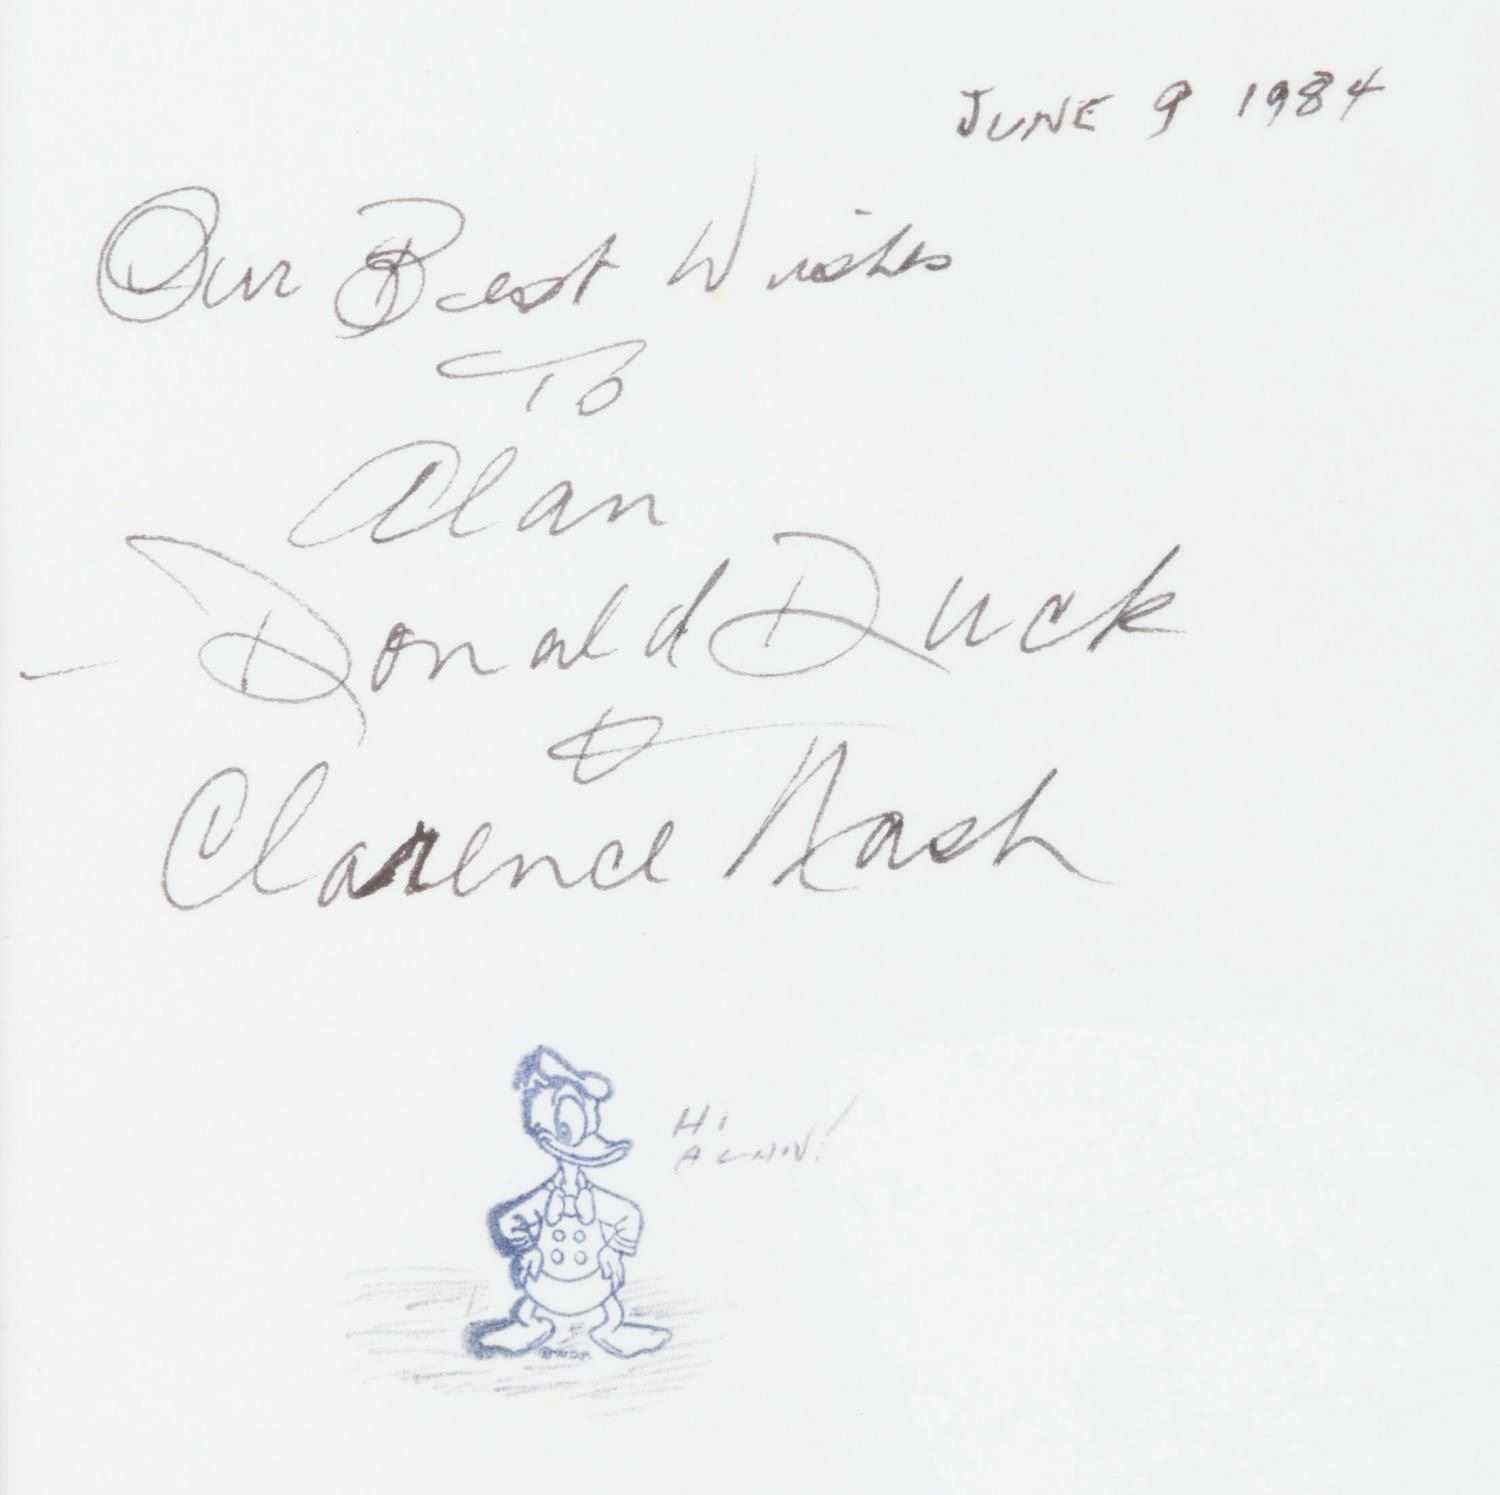 JUNE 9 1984
Our Best Wishes
To
Alan
Donald Duck
&
Clarence Nash
Hi
ALAN!